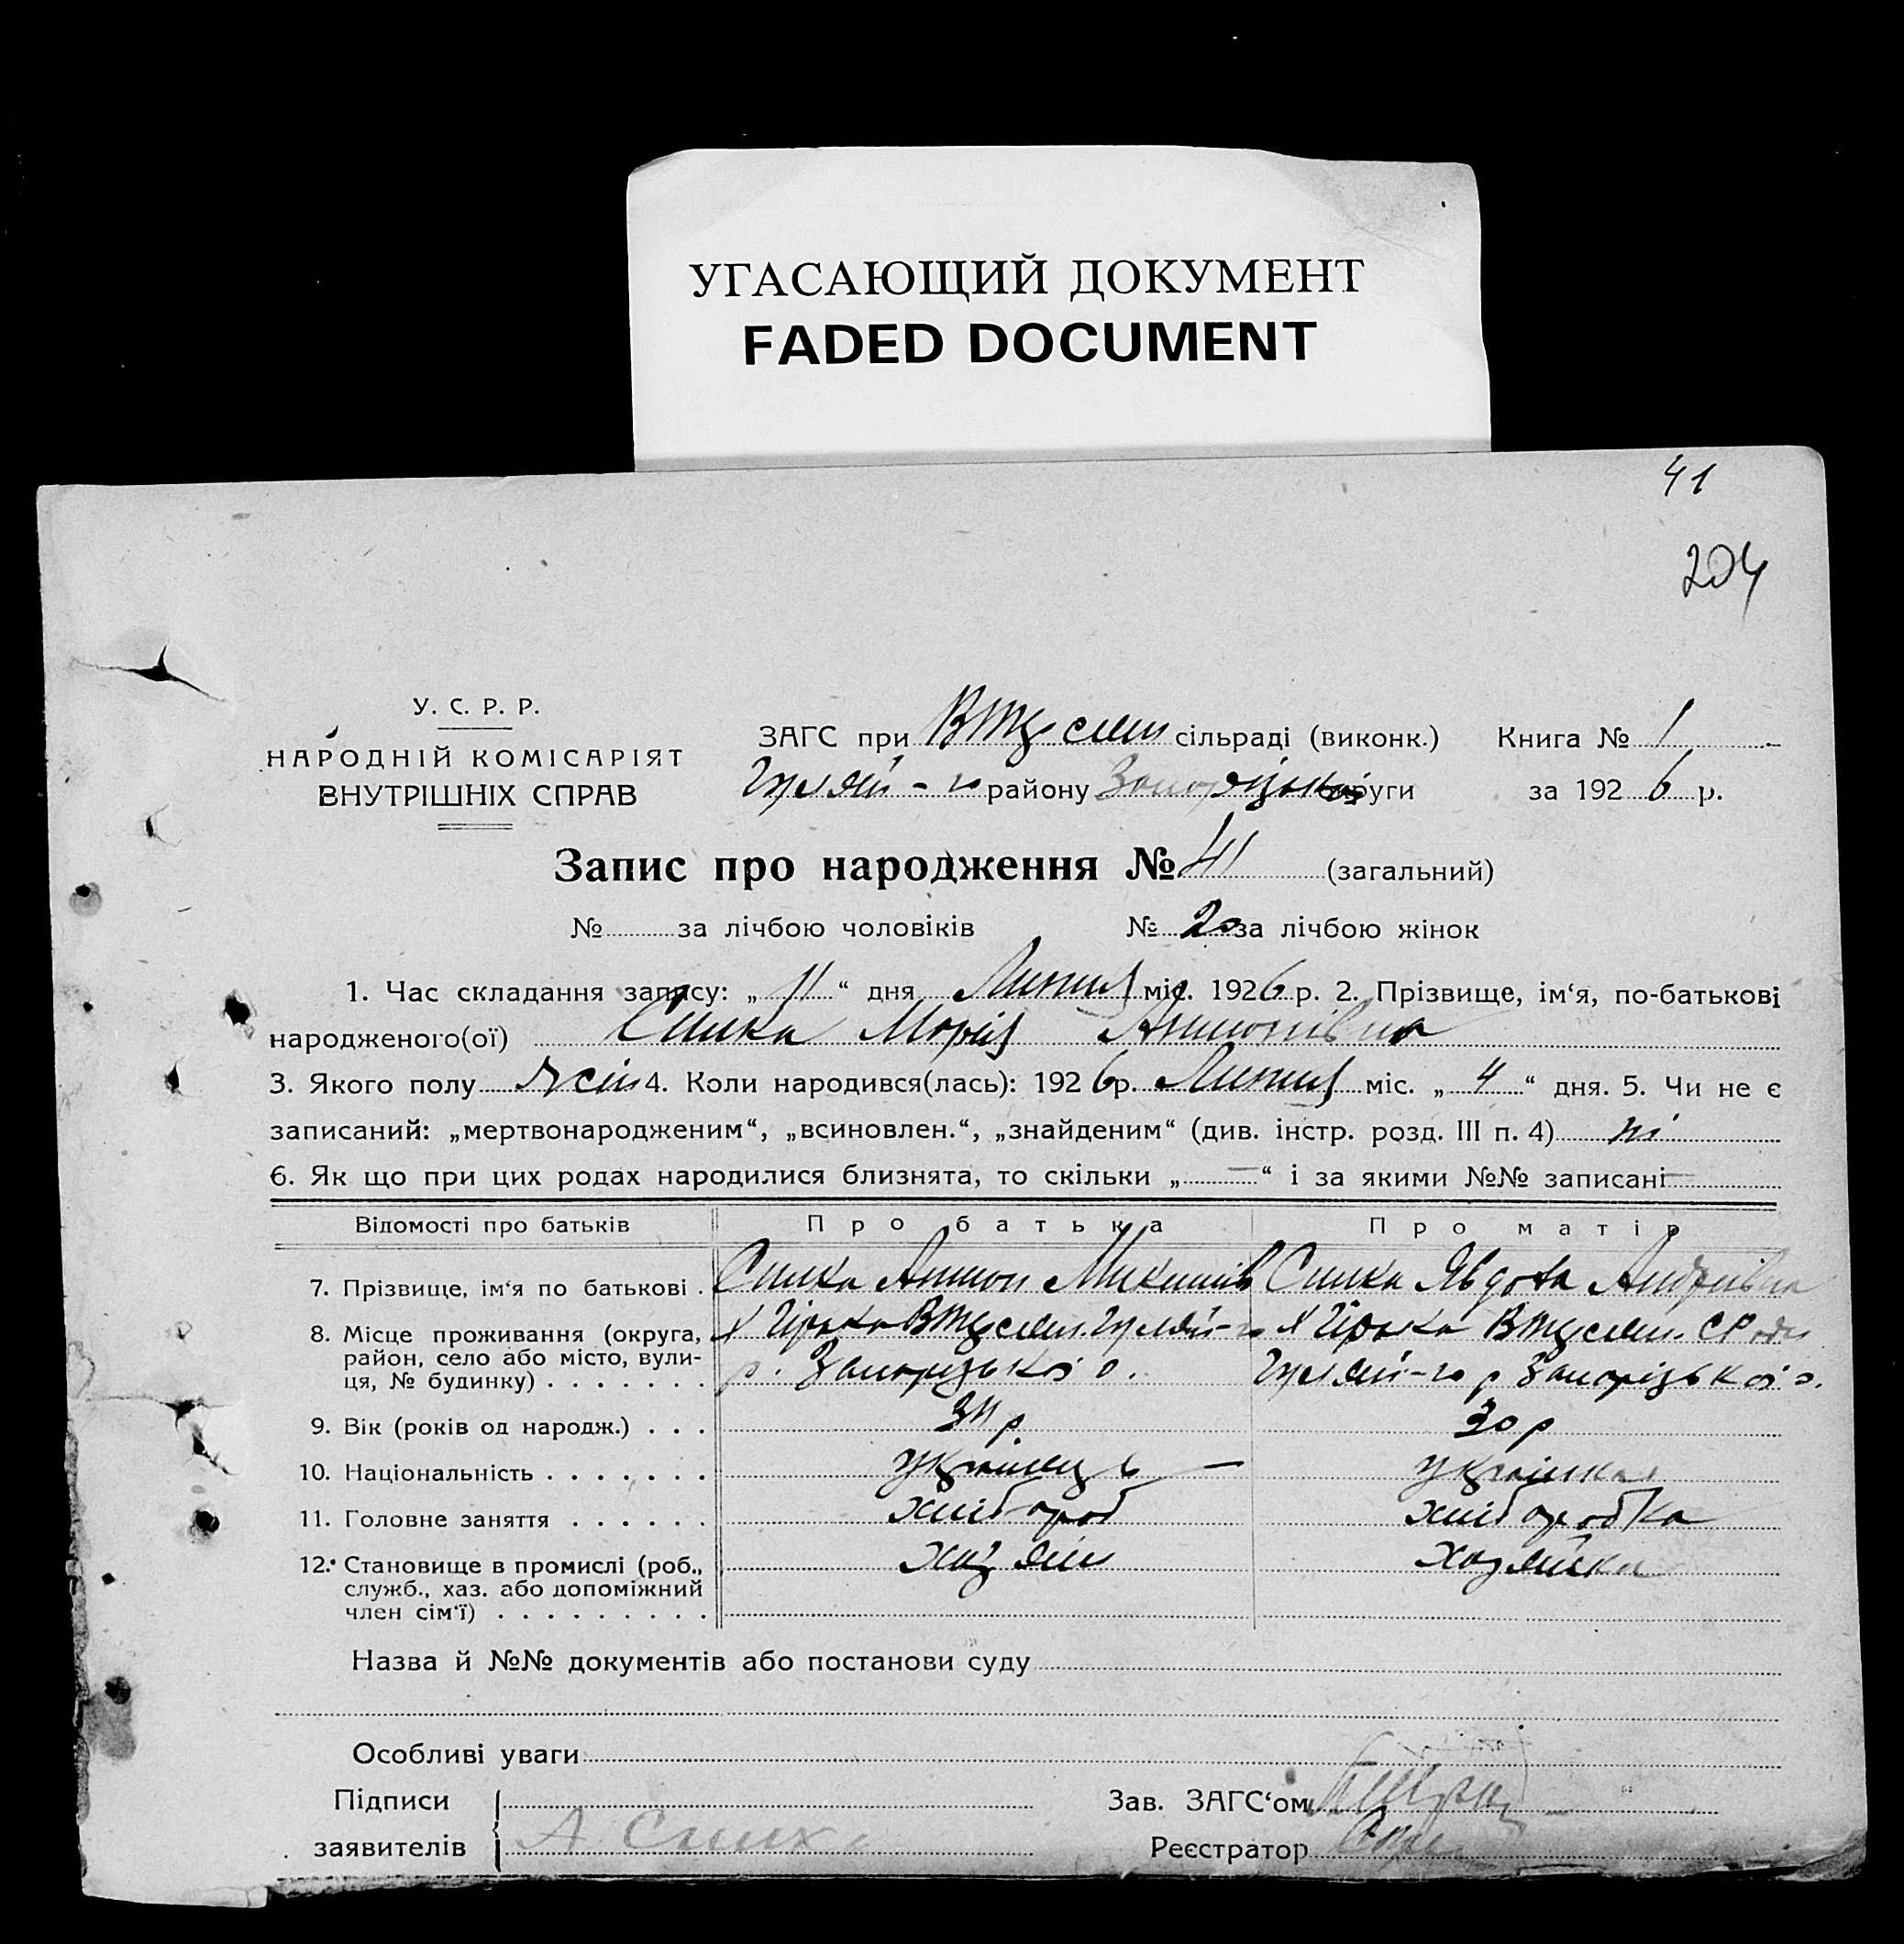 УГАСАЮЩИЙ ДОКУМЕНТ
FADED DOCUMENT
41
204
У. С. Р. Р.
НАРОДНІЙ КОМІСАРІЯТ
ВНУТРІШНІХ СПРАВ
ЗАГС при сільраді (виконк.) Книга № 1
Гуляй-го району Запорізької округи за 1926 р.
Запис про народження № 41 (загальний)
№ за лічбою чоловіків № 20 за лічбою жінок
1. Час складання запису: „ 11 “ дня Липня міс. 1926 р. 2. Прізвище, ім‘я, по-батькові
народженого(ої) Сипка Марія Антонівна
3. Якого полу жін 4. Коли народився(лась): 1926 р. Липня міс. „ 4 “ дня. 5. Чи не є
записаний: „мертвонародженим“, „всиновлен.“, „знайденим“ (див. інстр. розд. III п. 4) ні
6. Як що при цих родах народилися близнята, то скільки „ — “ і за якими №№ записані —
Відомості про батьків Про батька Про матір
7. Прізвище, ім‘я по батькові . Сипка Антон Микитів Сипка Явдоха Андріівна
8. Місце проживання (округа, Гуляй-го
район, село або місто, вули- р. Запорізької о. Гуляй-го р Запорізької о.
ця, № будинку) . . . . . . .
9. Вік (років од народж.) . . . р 30 р
10. Національність . . . . . . . українець — українка
11. Головне заняття . . . . . . хлібороб хлiборобка
12. Становище в промислі (роб., хазяін хазяйка
служб., хаз. або допоміжний
член сім‘ї) . . . . . . . . .
Назва й №№ документів або постанови суду
Особливі уваги
Підписи Зав. ЗАГС‘ом
заявителів А Сипка Реєстратор